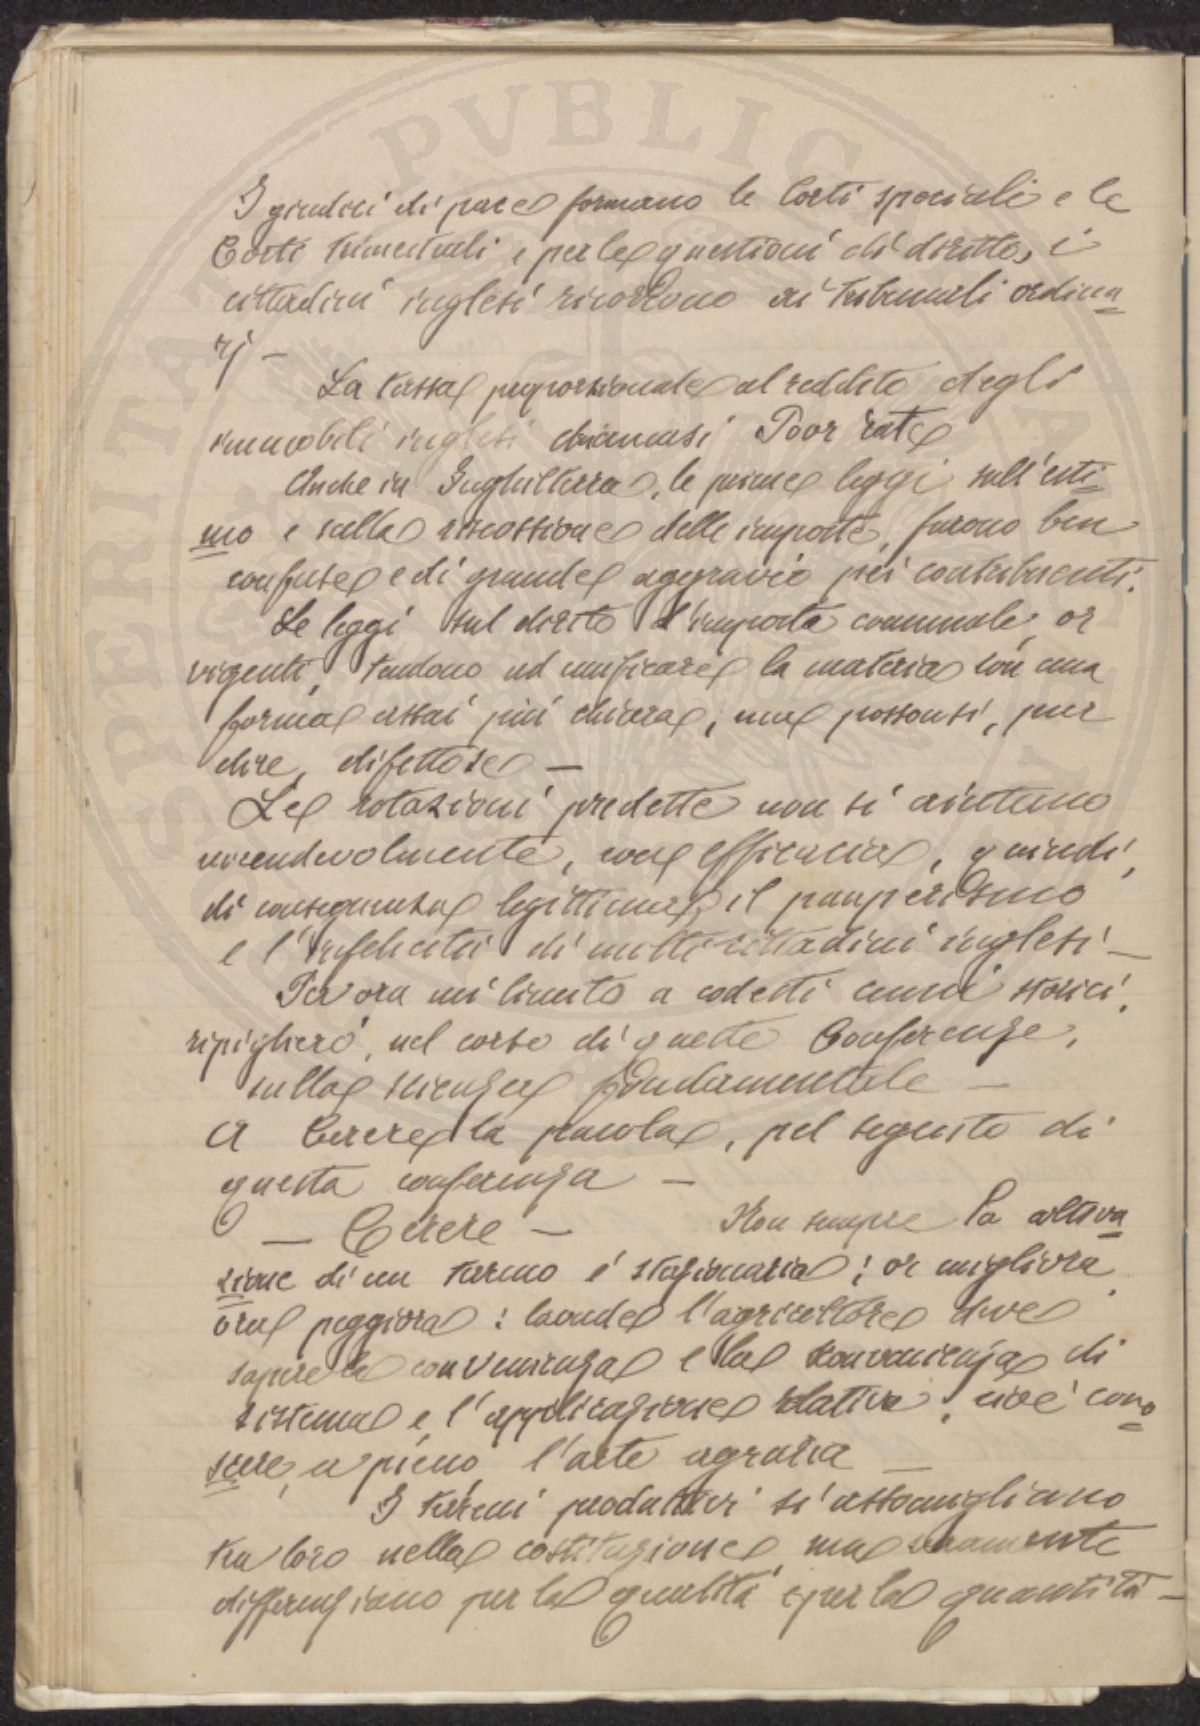 I giudici di pace formano le Corti speciali e le
Corti trimestrali e per le questioni di diritto, i
cittadini inglesi ricorrono ai tribunali ordina=
rj —
La tassa proporzionale al reddito degli
immobili inglesi chiamasi Poor rate
Anche in Inghilterra, le prime leggi sull'esti=
mo e sulla riscossione delle imposte, furono ben
confuse e di grande aggravio pei contribuenti.
Le leggi sul dirito d'imposta comunale, or
vigenti, tendono ad unificare la materia con una
forma assai più chiara; ma possonsi, pur
dire, difettose —
Le rotazioni predette non si aiutano
vicendevolmente, con efficacia, quindi,
di conseguenza legittima, il pauperismo
e l'infelicità di molti cittadini inglesi —
Per ora mi limito a codesti cenni storici,
ripiglierò, nel corso di queste Conferenze,
sulla scienza fondamentale —
A Cerere la parola, pel seguito di
questa conferenza —
— Cerere — Non sempre la coltiva=
zione di un tereno è stazionaria; or migliora,
ora peggiora: laonde l'agricoltore deve
sapere la convenienza e la sconvenienza di
sistema e, l'applicazione relativa, cioè cono=
scere, a pieno, l'arte agraria —
I tereni produttivi si assomigliano
tra loro nella costituzione, ma
differenziano per la qualità e per la quantità —
PVBLIC
SPERITATI
SPE